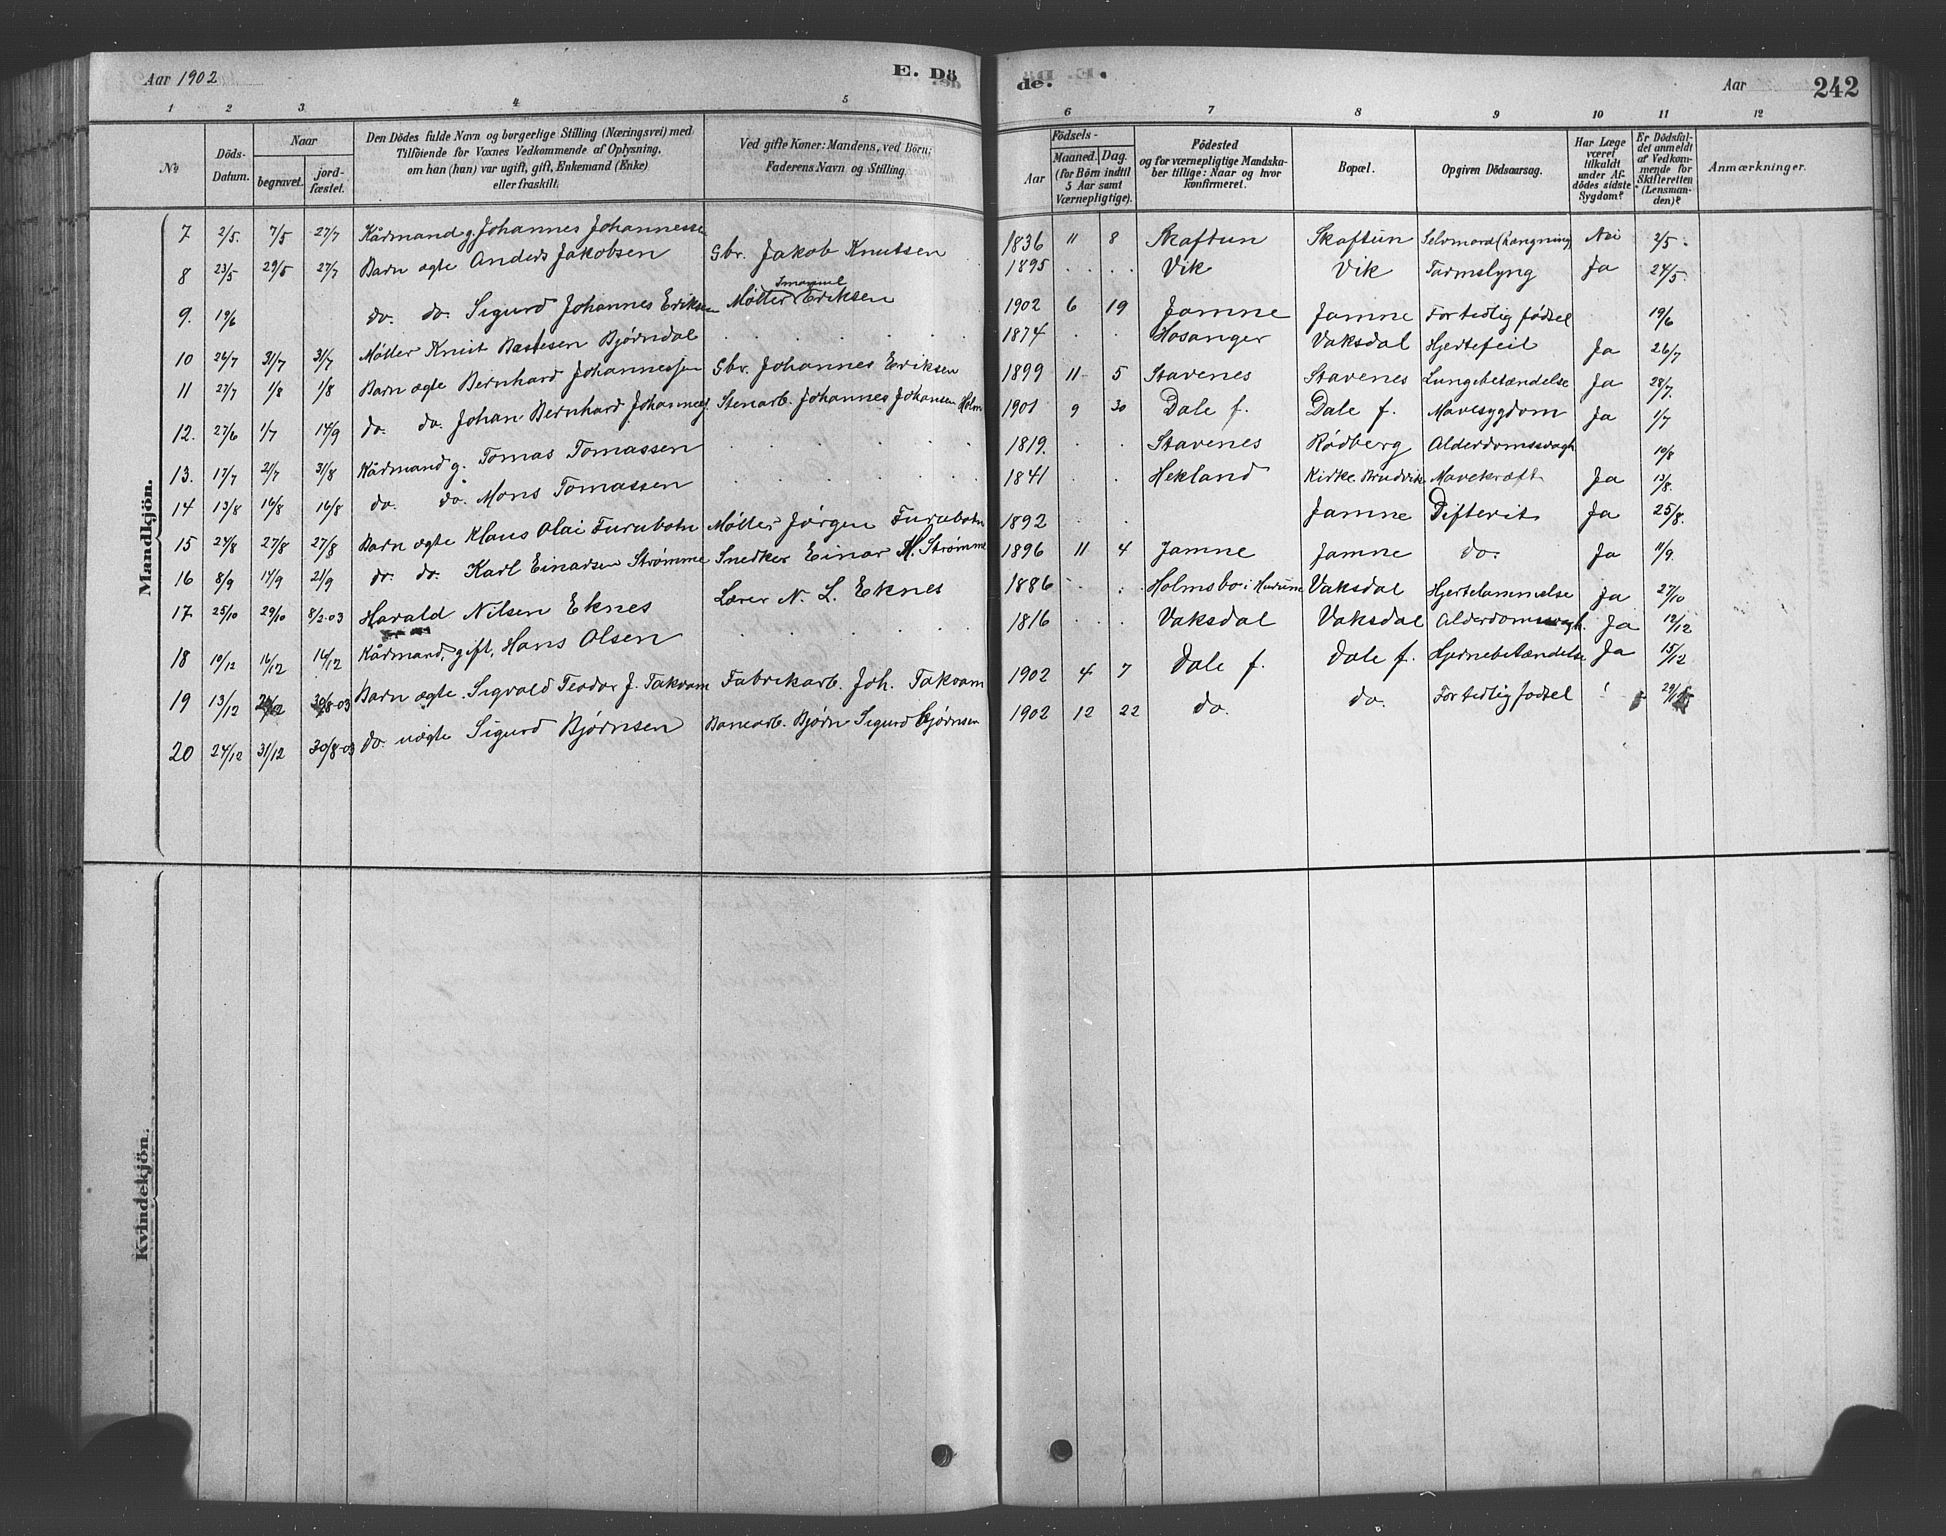 Aar 1902 E. Dö
1 2 3 4 5
No Döds-Datum. Naar begravet. jordfæstet. Den Dödes fulde Navn og borgerlige Stilling (Næringsvei) med Tilföiende for Voxnes Vedkommende af Oplysning, om han (hun) var ugift, gift, Enkemand (Enke) eller fraskilt. Ved gifte Koner: Mandens, ved Börn: Faderens Navn og Stilling.
Mandkjön.
7 2/5. 7/5 27/7 Kårmand g. Johannes Johannesse
8 23/5 29/5 27/7 Barn ægte Anders Jakobsen Gbr. Jakob Knutsen
9. 19/6 do. do. Sigurd Johannes Eriksen Møller Imanuel Eriksen
10 26/7 31/7 31/7 Møller Knut Bastesen Bjørndal . . . . .
11 27/7 1/8 1/8 Barn ægte Bernhard Johannessen Gbr. Johannes Eriksen
12. 27/6 1/7 14/9 do. do. Johan Bernhard Johannes. Stenarb. Johannes Johansen Holm
13. 17/7 2/7 31/8 Kårmand g. Tomas Tomassen . . . . .
14 13/8 16/8 16/8 do. do. Mons Tomassen . . . . .
15 24/8 27/8 27/8 Barn ægte Klaus Olai Furubotn Møller Jørgen Furubotn
16 8/9 14/9 21/9 do. do. Karl Einarsen Strømme Snedker Einar M. Strømme
17. 25/10 29/10 8/2.03 Harald Nilsen Eknes Lærer N. L. Eknes
18 10/12 16/12 16/12 Kårmand, gift, Hans Olsen . . . . .
19 13/12 30/8.03 Barn ægte. Sigvald Teodor J. Takvam Fabrikarb. Joh. Takvam
20 24/12 31/12 30/8.03 do. uægte Sigurd Bjørnsen Banearb. Bjørn Sigurd Bjørnsen
Kvindekjön.
de. Aar 242
6 7 8 9 10 11 12
Födsels- Aar Maaned. Dag. (for Börn indtil 5 Aar samt Værnepligtige). Födested og for værnepligtige Mandskaber tillige: Naar og hvor konfirmeret. Bopæl. Opgiven Dödsaarsag. Har Læge været tilkaldt under Afdödes sidste Sygdom? Er Dödsfaldet anmeldt af Vedkommende for Skifteretten (Lensmanden)? Anmærkninger.
1836 11 8 Skaftun Skaftun Selvmord (hængning) Nei 2/5.
1895 . . . . Vik Vik Tarmslyng Ja 24/5.
1902 6 19 Jamne Jamne For tidlig fødsel 19/6
1874 . . Hosanger Vaksdal Hjertefeil Ja 26/7
1899 11 5 Stavenes Stavenes Lungebetændelse Ja 28/7.
1901 9 30 Dale f. Dale f. Mavesygdom Ja 1/7
1819. . . Stavenes Rødberg Alderdomssvagh. 10/8
1841 . . Hekland Kirke. Bruvik Mavekræft Ja 13/8.
1892 . . Jamne Difterit Ja 25/8.
1896 11 4 Jamne Jamne do. Ja 11/9.
1886 . . Holmsbo i Hurum Vaksdal Hjertelammelse Ja 27/10
1816 . . . Vaksdal Vaksdal Alderdomssvagh. Ja 12/12
1902 4 7 Dale f. Dale f. Hjernebetændelse Ja 15/12
1902 12 22 do. do. For tidlig fødsel